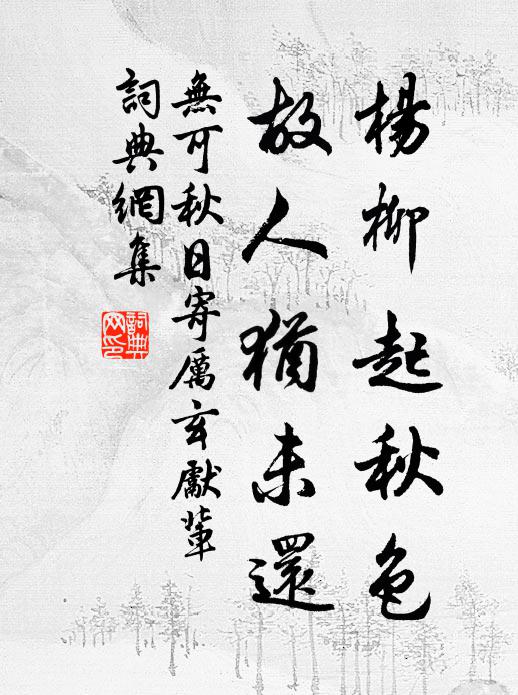 楊柳起秋色
故人猶未還
無可秋日寄厲玄獻輩
詞典網集
詞典
网印